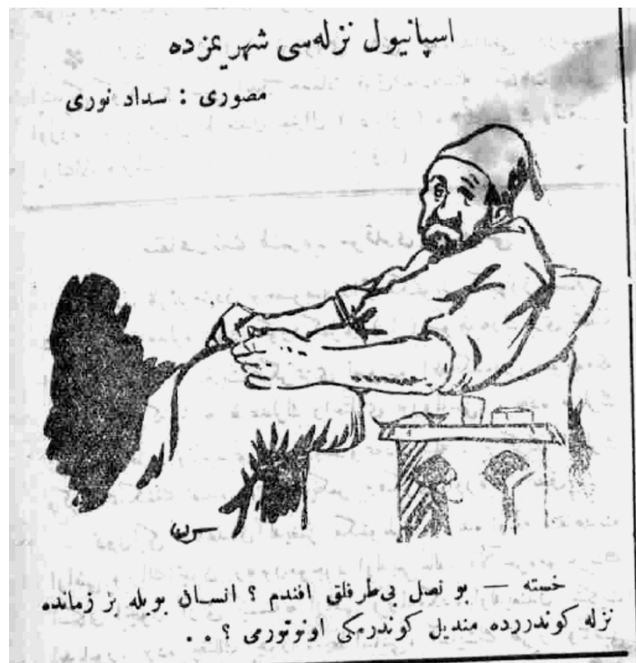 اسپانیول نزله‌سی شهریمزده
مصوری : سداد نوری
سداد
خسته — بو نصل بی‌طرفلق افندم ؟ انسان بویله بر زمانده
نزله كوندررده مندیل كوندرمكی اونوتورمی ؟ . .